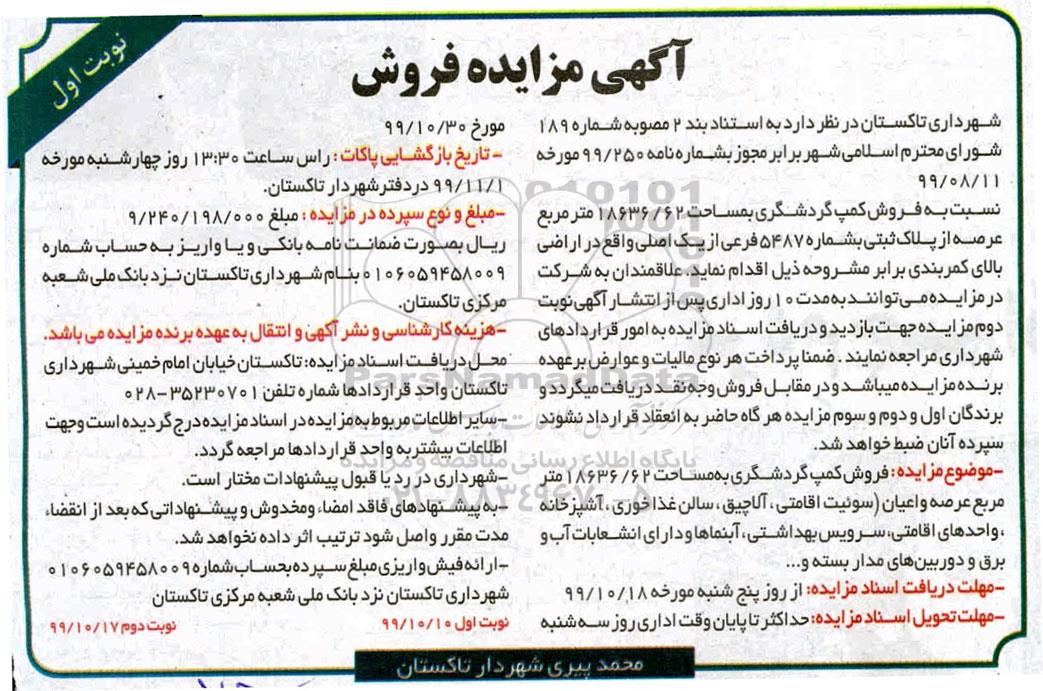 نوبت اول
آگهی مزایده فروش
شهرداری تاکستان در نظر دارد به استناد بند ۲ مصوبه شماره ۱۸۹
شورای محترم اسلامی شهر برابر مجوز بشماره نامه ۹۹/۲۵۰ مورخه
۹۹/۰۸/۱۱
نسبت به فروش کمپ گردشگری بمساحت ۱۸۶۳۶/۶۲ متر مربع
عرصه از پلاک ثبتی بشماره ۵۴۸۷ فرعی از یک اصلی واقع در اراضی
بالای کمربندی برابر مشروحه ذیل اقدام نماید. علاقمندان به شرکت
در مزایده می توانند به مدت ۱۰ روز اداری پس از انتشار آگهی نوبت
دوم مزایده جهت بازدید و دریافت اسناد مزایده به امور قراردادهای
شهرداری مراجعه نمایند . ضمنا پرداخت هر نوع مالیات و عوارض بر عهده
برنده مزایده میباشد و در مقابل فروش وجه نقد دریافت میگردد و
برندگان اول و دوم و سوم مزایده هر گاه حاضر به انعقاد قرارداد نشوند
سپرده آنان ضبط خواهد شد.
-موضوع مزایده : فروش کمپ گردشگری به مساحت ۱۸۶۳۶/۶۲ متر
مربع عرصه واعیان (سوئیت اقامتی ، آلاچیق ، سالن غذا خوری ، آشپزخانه
، واحدهای اقامتی، سرویس بهداشتی ، آبنماها و دارای انشعابات آب و
برق و دوربین های مدار بسته و...
-مهلت دریافت اسناد مزایده: از روز پنج شنبه مورخه ۹۹/۱۰/۱۸
-مهلت تحویل اسناد مزایده: حداکثر تا پایان وقت اداری روز سه شنبه
مورخ ۹۹/۱۰/۳۰
- تاریخ بازگشایی پاکات : راس ساعت ۱۳:۳۰ روز چهارشنبه مورخه
۹۹/۱۱/۱ در دفتر شهردار تاکستان.
-مبلغ و نوع سپرده در مزایده : مبلغ ۹/۲۴۰/۱۹۸/۰۰۰
ریال بصورت ضمانت نامه بانکی و یا واریز به حساب شماره
۰۱۰۶۰۵۹۴۵۸۰۰۹ بنام شهرداری تاکستان نزد بانک ملی شعبه
مرکزی تاکستان.
-هزینه کارشناسی و نشر آگهی و انتقال به عهده برنده مزایده می باشد.
محل دریافت اسناد مزایده: تاکستان خیابان امام خمینی شهرداری
تاکستان واحد قراردادها شماره تلفن ۳۵۲۳۰۷۰۱-۰۲۸
-سایر اطلاعات مربوط به مزایده در اسناد مزایده درج گردیده است وجهت
اطلاعات بیشتر به واحد قراردادها مراجعه گردد.
-شهرداری در رد یا قبول پیشنهادات مختار است.
-به پیشنهادهای فاقد امضاء ومخدوش و پیشنهاداتی که بعد از انقضاء
مدت مقرر واصل شود ترتیب اثر داده نخواهد شد.
-ارائه فیش واریزی مبلغ سپرده بحساب شماره ۰۱۰۶۰۵۹۴۵۸۰۰۹
شهرداری تاکستان نزد بانک ملی شعبه مرکزی تاکستان
نوبت اول ۹۹/۱۰/۱۰ نوبت دوم ۹۹/۱۰/۱۷
محمد پیری شهردار تاکستان
ParsNamadData
پایگاه اطلاع رسانی مناقصه و مزایده
۰۲۱-۸۸۳۴۹۶۷۰-۵